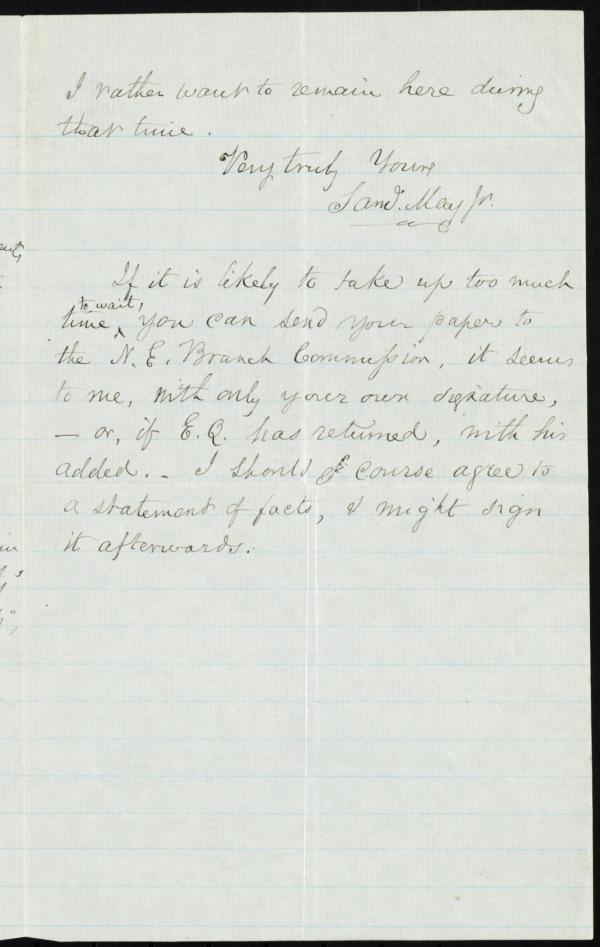 I rather want to remain here during
that time.
Very truly Yours
Saml. May Jr.
If it is likely to take up too much
to wait,
time, you can send your paper to
the N. E. Branch Commission, it seems
to me, with only your own signature,
— or, if E.Q. has returned, with his
added. - I should of course agree to
a statement of facts, & might sign
it afterwards.